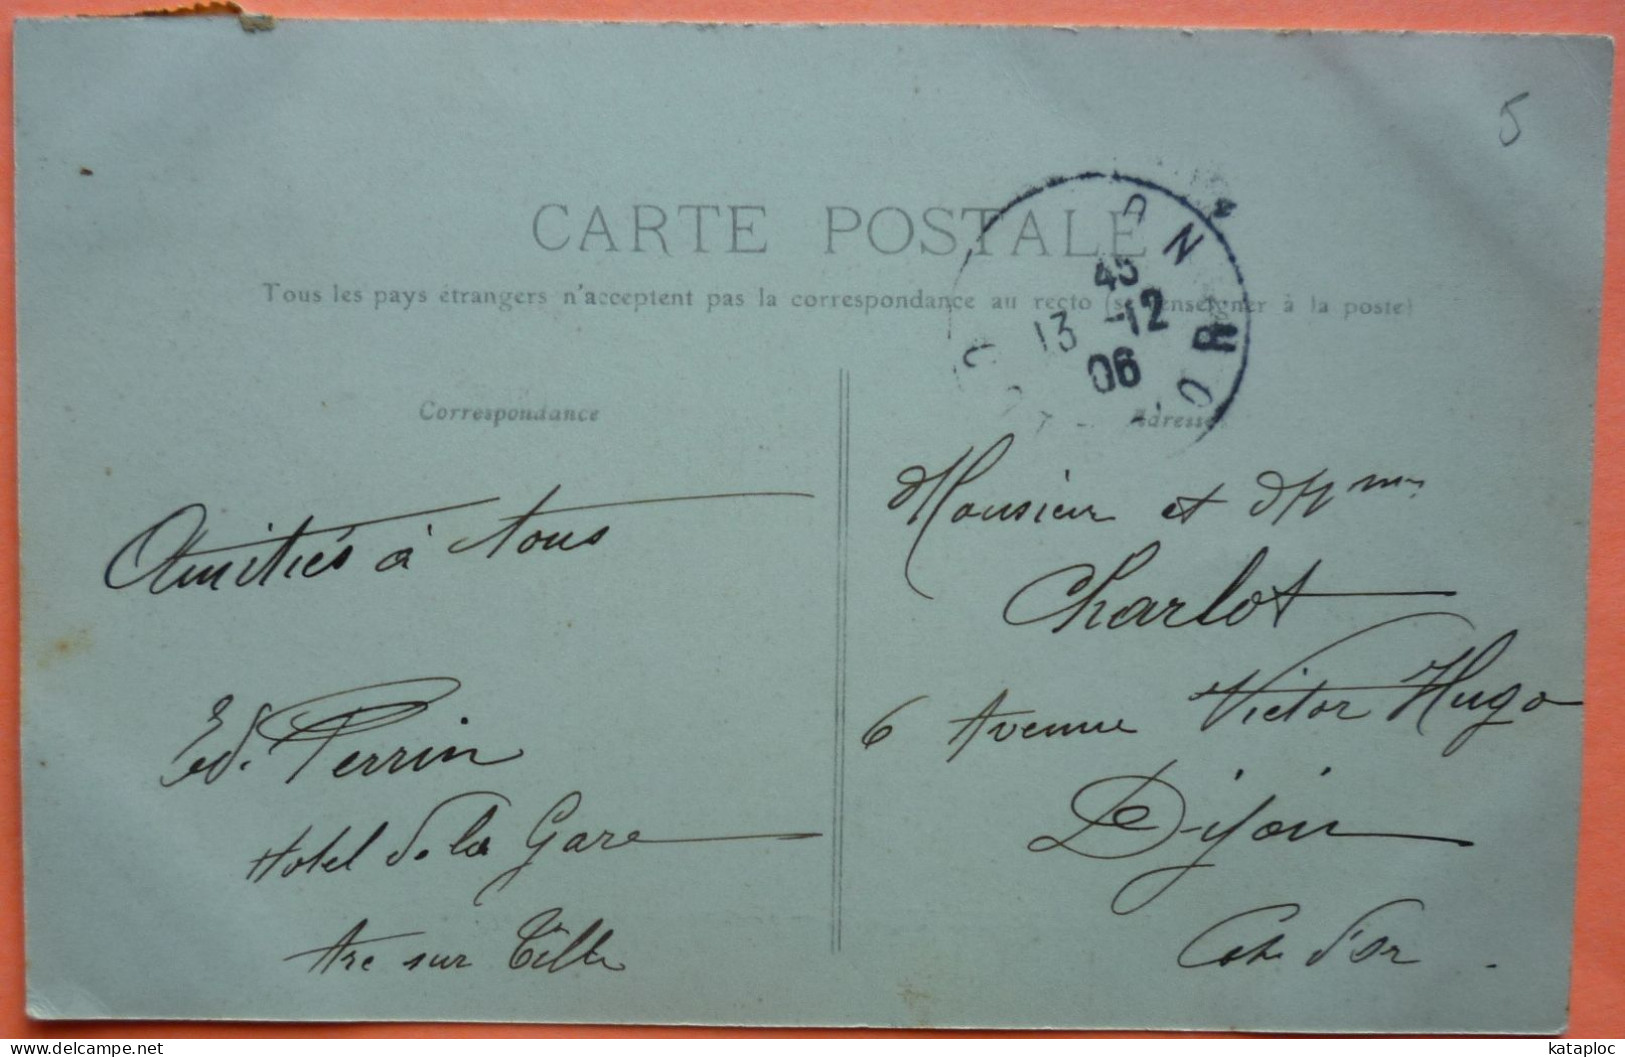 5
CARTE POSTALE
Tous les pays étrangers n'acceptent pas la correspondance au recto (se renseigner à la poste)
45
13 -12
06
OR
Correspondance
Amitiés à tous
Ed. Perrin
Hotel de la Gare
Arc sur Tille
Adresse
Monsieur et Mme
Charlot
6 Avenue Victor Hugo
Dijon
Côte d'Or.
kataploc